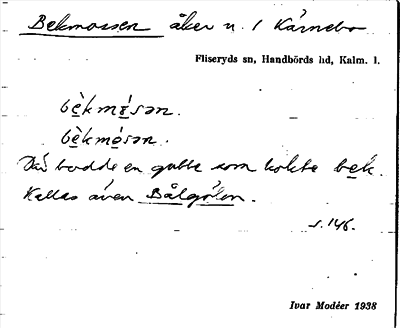 Bekmossen åker n. l Kärnebo
Fliseryds sn, Handbörds hd, Kalm. l.
bèkmɵsən.
bèkmósən.
Där bodde en gubbe som kokte bek.
Kallas även Bålgölen.
s. 146.
Ivar Modéer 1938